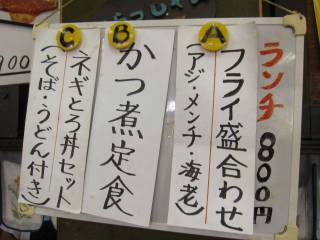 ランチ 800円
A
フライ盛合わせ
(アジ・メンチ・海老)
B
かつ煮定食
C
ネギとろ丼セット
(そば・うどん付き)